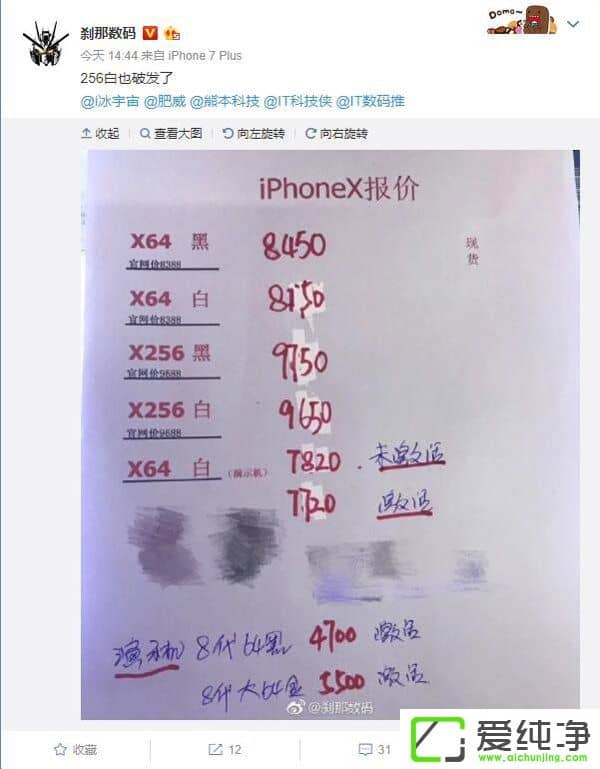 Domo~
刹那数码
今天 14:44 来自 iPhone 7 Plus
256白也破发了
@i冰宇宙 @肥威 @熊本科技 @IT科技侠 @IT数码推
收起 查看大图 向左旋转 向右旋转
iPhoneX报价
X64 黑 8450 现货
官网价8388
X64 白 8150
官网价8388
X256 黑 9750
官网价9688
X256 白 9650
官网价9688
X64 白 (演示机) 7820 . 未激活
7720 激活
演示机 8代64黑 4700 激活
8代大64金 5500 激活
@刹那数码
收藏 12 31
爱纯净
www.aichunjing.com